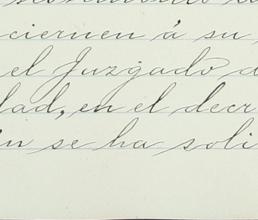 ciernen á su
el Juzgado d
dad, en el decr
n se ha soli